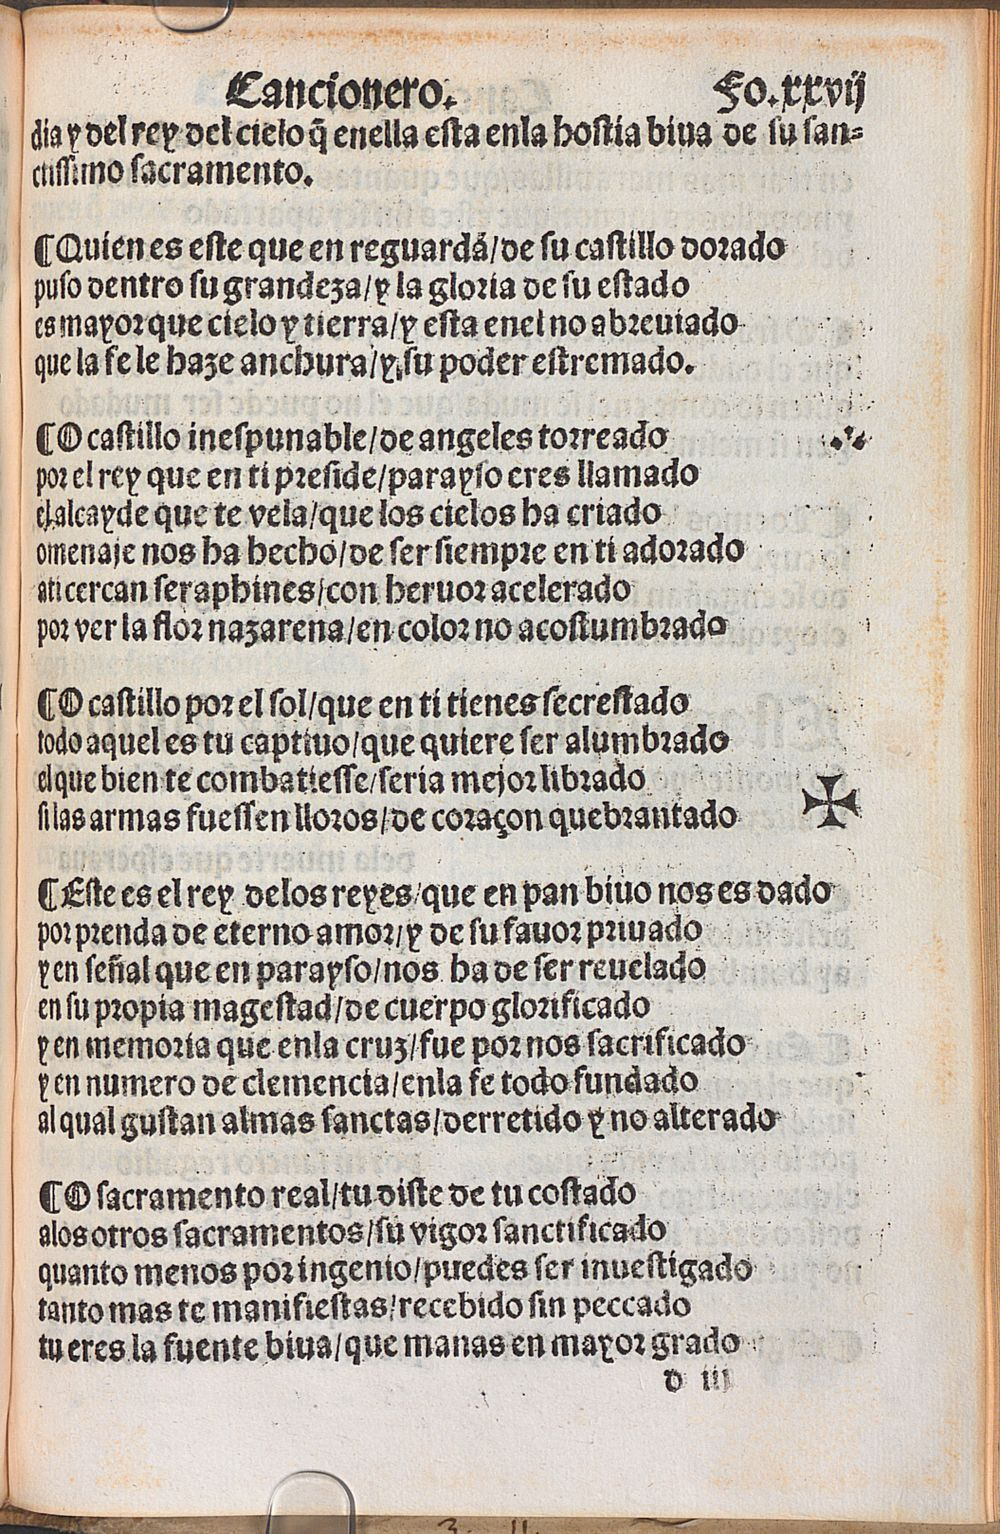 Cancionero. Fo.xxvij
dia y del rey del cielo q̃ enella esta enla hostia biua de su san-
ctissimo sacramento.
¶Quien es este que en reguarda/de su castillo dorado
puso dentro su grandeza/y la gloria de su estado
es mayor que cielo y tierra/y esta enel no abreuiado
que la fe le haze anchura/y su poder estremado.
¶O castillo inespunable/de angeles torreado
por el rey que en ti preside/parayso eres llamado
el alcayde que te vela/que los cielos ha criado
omenaje nos ha hecho/de ser siempre en ti adorado
ati cercan seraphines/con heruor acelerado
por ver la flor nazarena/en color no acostumbrado
¶O castillo por el sol/que en ti tienes secrestado
todo aquel es tu captiuo/que quiere ser alumbrado
el que bien te combatiesse/seria mejor librado
si las armas fuessen lloros/de coraçon quebrantado
¶Este es el rey delos reyes/que en pan biuo nos es dado
por prenda de eterno amor/y de su fauor priuado
y en señal que en parayso/nos ha de ser reuelado
en su propia magestad/de cuerpo glorificado
y en memoria que enla cruz/fue por nos sacrificado
y en numero de clemencia/enla fe todo fundado
al qual gustan almas sanctas/derretido y no alterado
¶O sacramento real/tu diste de tu costado
alos otros sacramentos/su vigor sanctificado
quanto menos por ingenio/puedes ser inuestigado
tanto mas te manifiestas/recebido sin peccado
tu eres la fuente biua/que manas en mayor grado
d iij